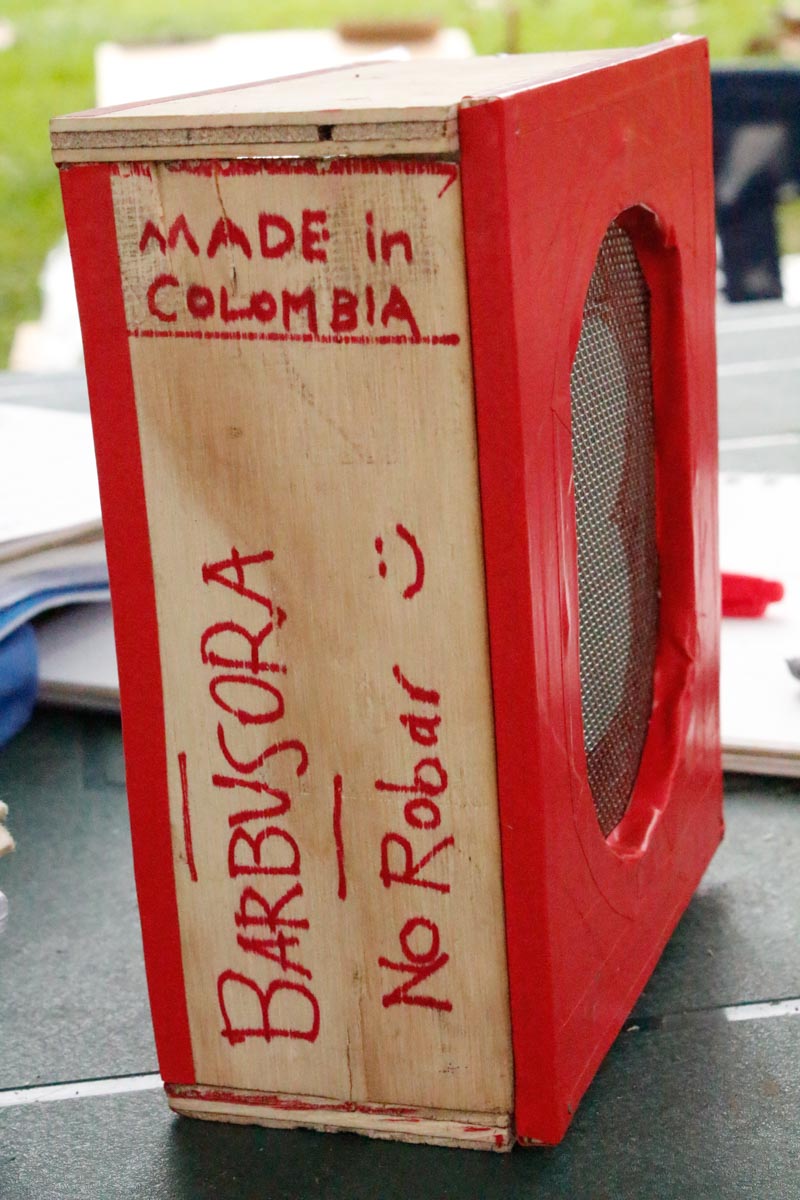 MADE in
COLOMBIA
BARBUSORA
No Robar :)